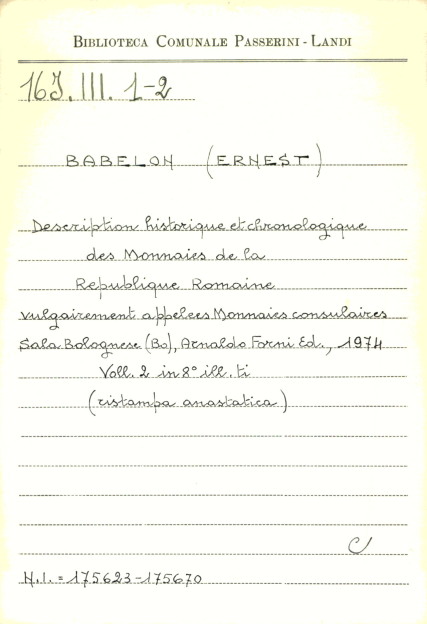 BIBLIOTECA COMUNALE PASSERINI - LANDI
16J. III. 1-2
BABELON (ERNEST)
Description historique et chronologique
des Monnaies de la
Republique Romaine
vulgairement appelees Monnaies consulaires
Sala Bolognese (Bo), Arnaldo Forni Ed., 1974
Voll. 2 in 8° ill. ti
(ristampa anastatica)
C
N.I. = 175623-175670